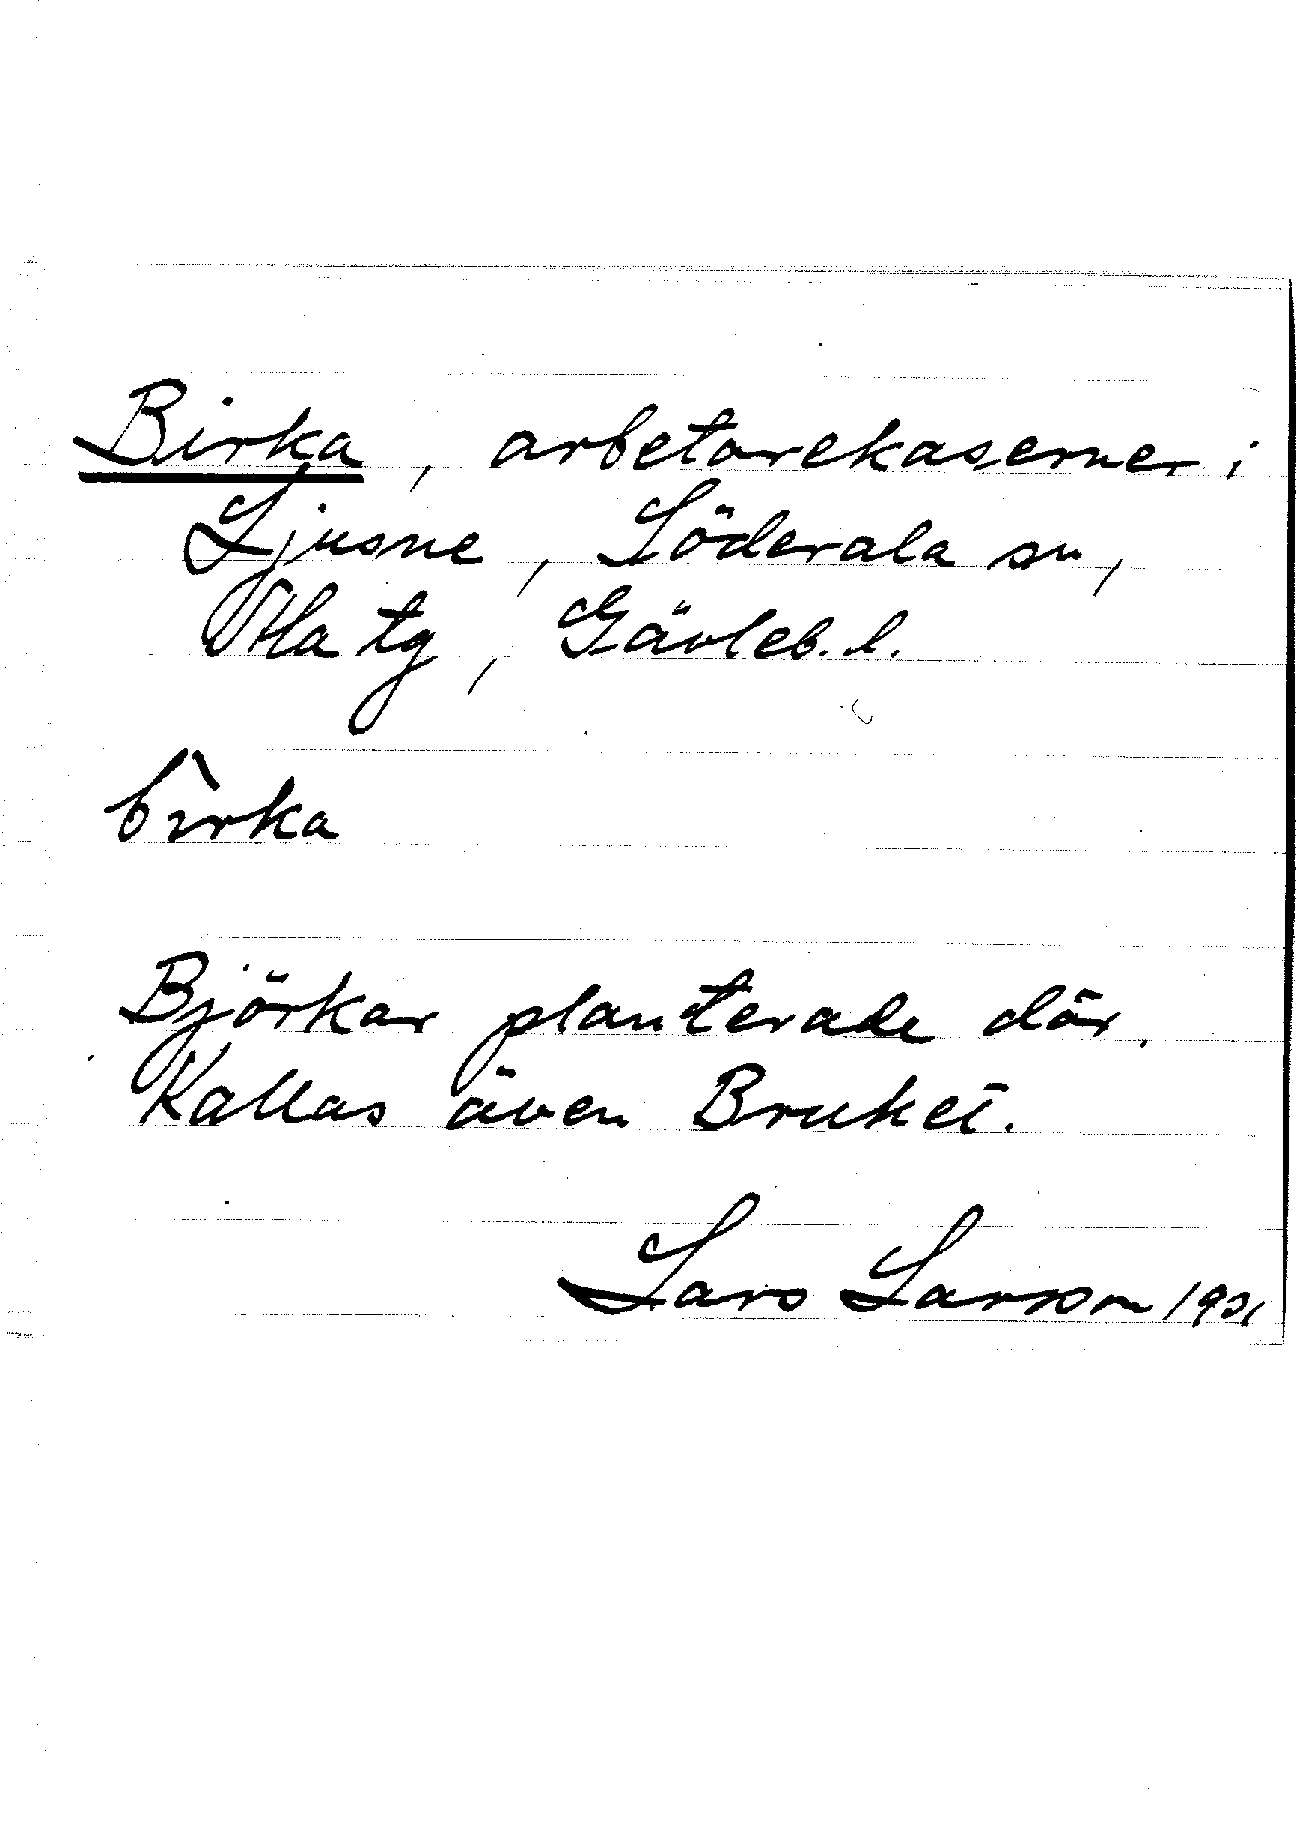 Birka, arbetarekaserner i
Ljusne, Söderala sn,
Ala tg, Gävleb. l.
bìrka
Björkar planterade där.
Kallas även Bruket.
Lars Larsson 1931